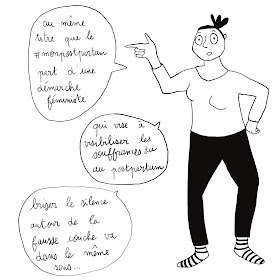 au même
titre que le
#monpostpartum
part d'une
démarche
féministe
qui vise à
visibiliser les
souffrances du
au postpartum
briser le silence
autour de la
fausse couche va
dans le même
sens...